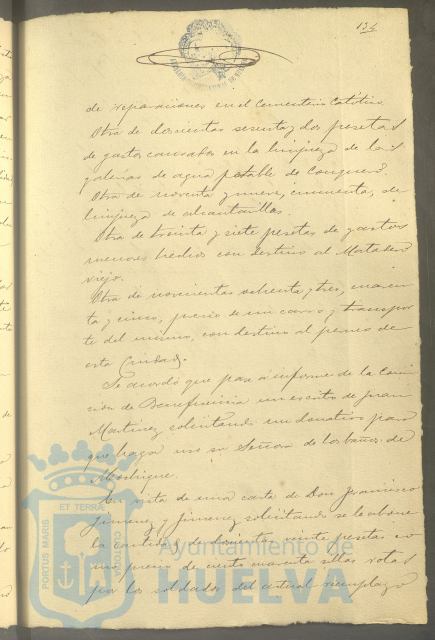 134
de reparaciones en el Cementerio Católico
Otra de doscientas sesenta y dos pesetas
de gastos causados en la limpieza de las
galerías de agua potable de Conquero.
Otra de noventa y nueve, cincuenta, de
limpieza de alcantarillas.
Otra de treinta y siete pesetas de gastos
menores hechos con destino al Matadero
viejo.
Otra de novecientas ochenta y tres, cuaren
ta y cinco, precio de un carro y transpor
te del mismo, con destino al penso de
esta Ciudad.
Se acordó que pase a informe de la Comi
sion de Beneficencia un escrito de Juan
Martinez solicitando un donativo para
que haga uso su Señora de los baños de
En vista de una carta de Don Francisco
Jimenez y Jimenez solicitando se le abone
la cantidad de doscientas veinte pesetas co
mo precio de ciento cuarenta sillas rotas
por los soldados del actual reemplazo
PORTUS MARIS ET TERRAE CUSTODIA
Ayuntamiento de
HUELVA